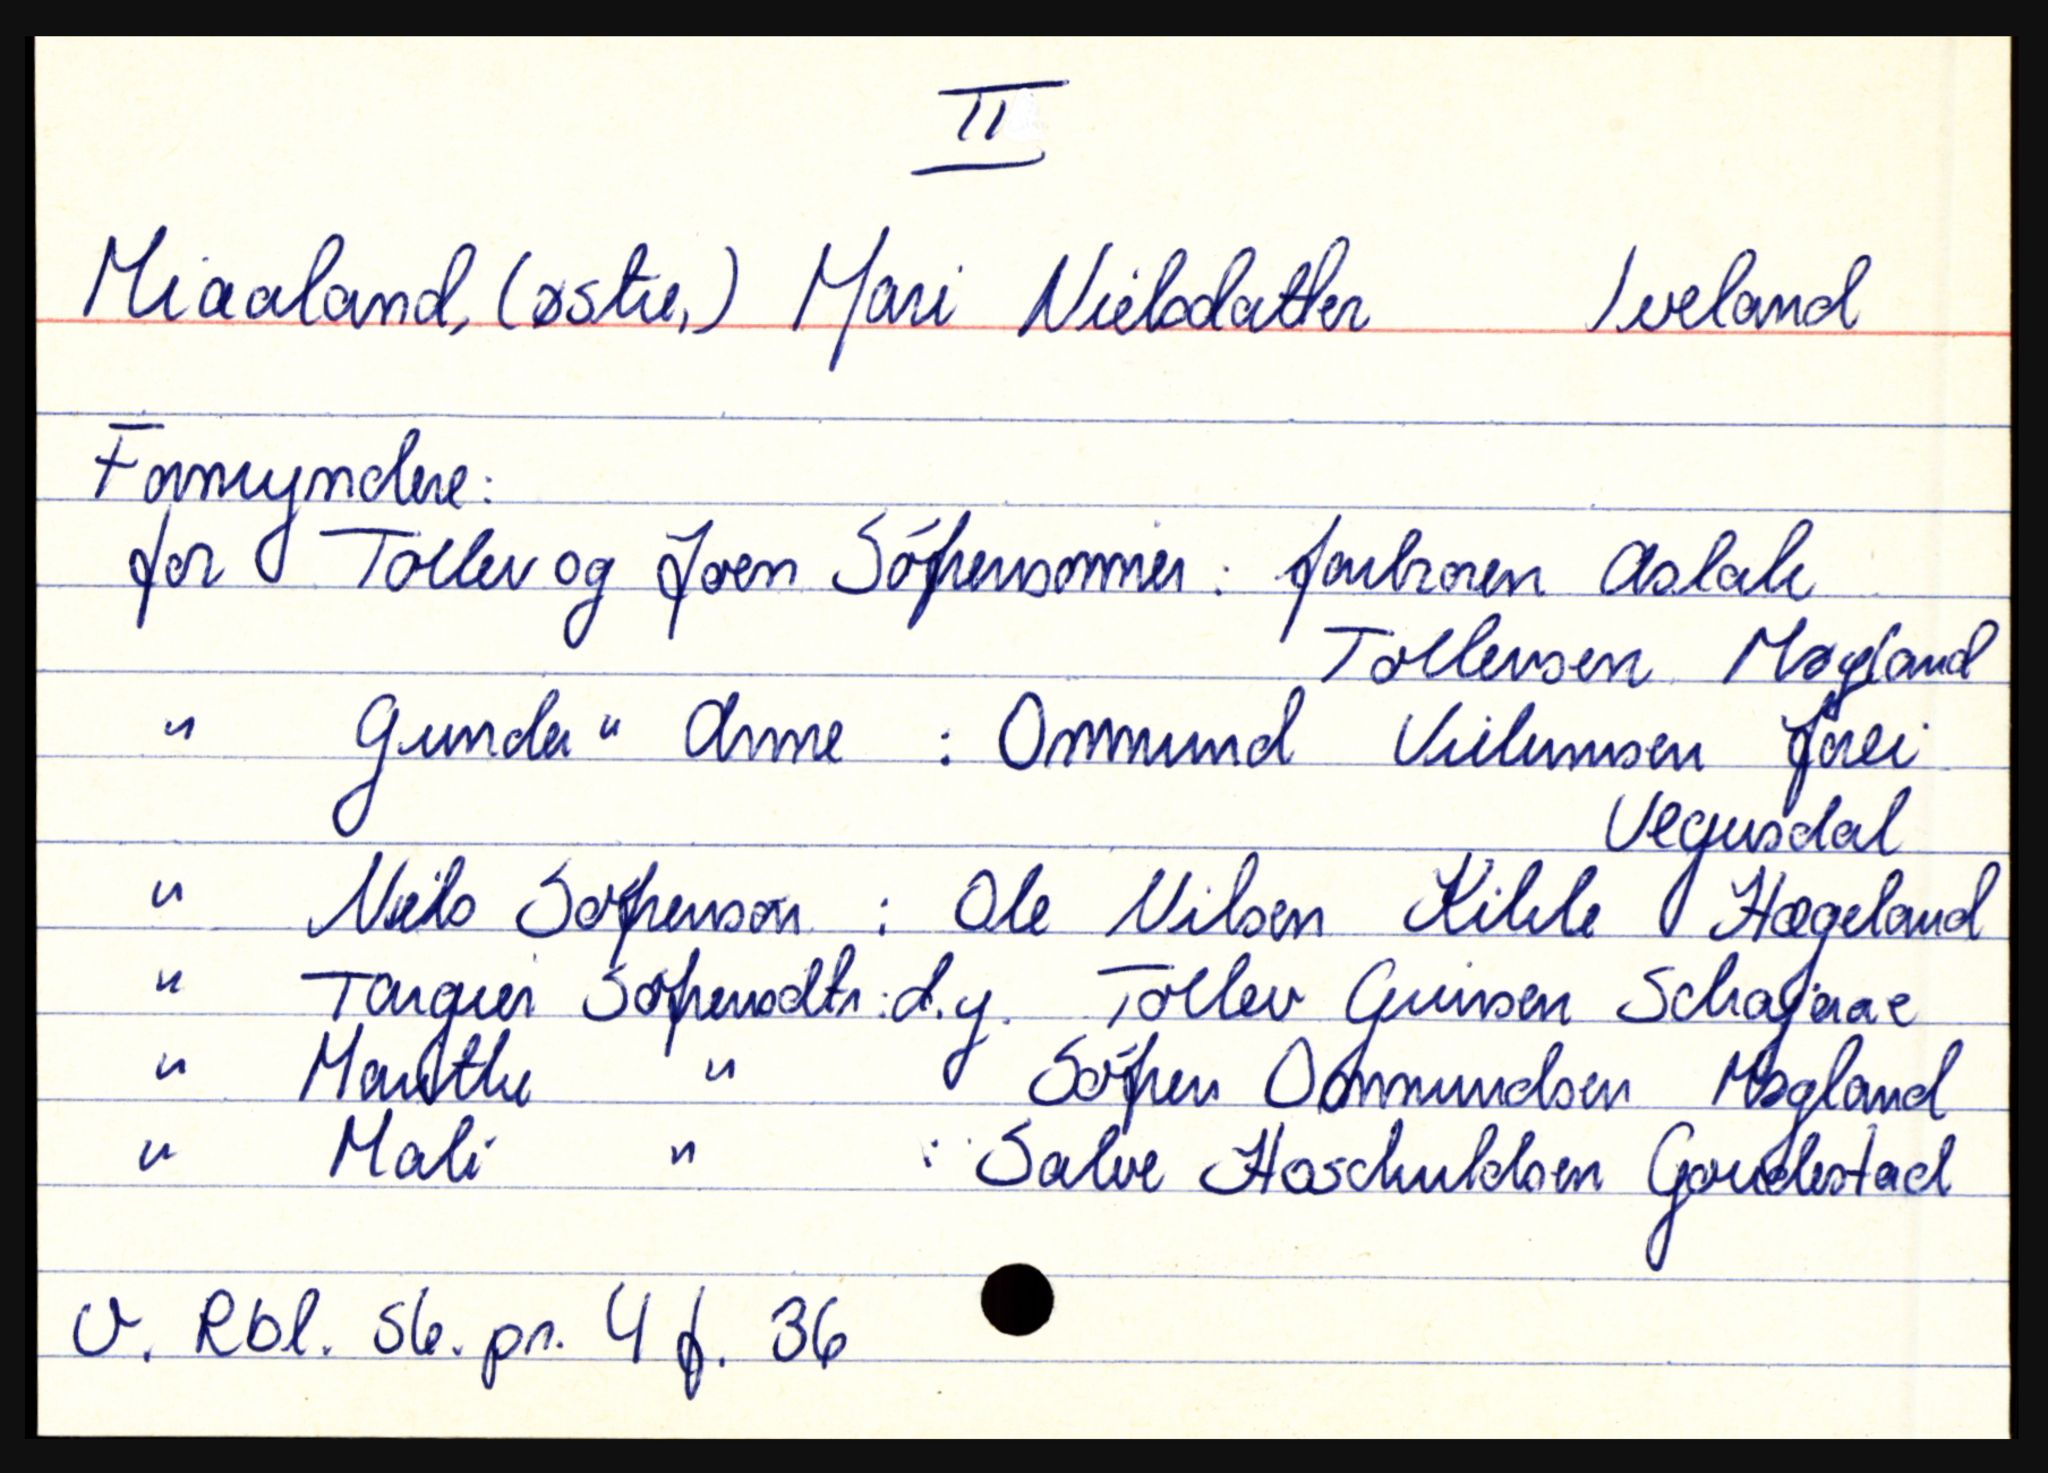 II
Miaaland, (østre,) Mari Nielsdatter Iveland
Formyndere:
for Tollev og Joen Söfrensønner: farbroren Aslak
Tollevsen Møgland
" Gunder " Anne : Ommund Vielumsen Jorei
Vegusdal
" Niels Søfrensøn : Ole Nilsen Kihle Hægeland
" Targier Søfrensdtr: d.y. Tollev Guisen
" Marthe " Söfren Ommundsen Møgland
" Mali " : Salve Haschuldsen
V. Rbl. Sk. pr. 4 f. 36